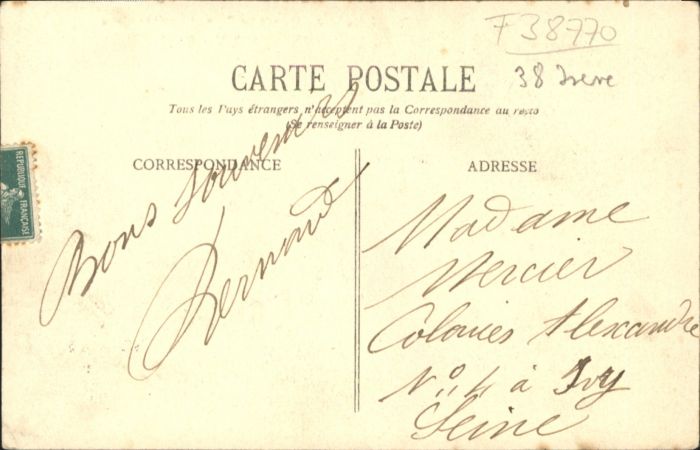 F 38770
38 Isère
CARTE POSTALE
Tous les Pays étrangers n'acceptent pas la Correspondance au recto
(Se renseigner à la Poste)
CORRESPONDANCE
Bons Souvenirs
Bernard
REPUBLIQUE FRANÇAISE
ADRESSE
Madame
Mercier
Colonies Alexandre
No 4 à Ivry
Seine